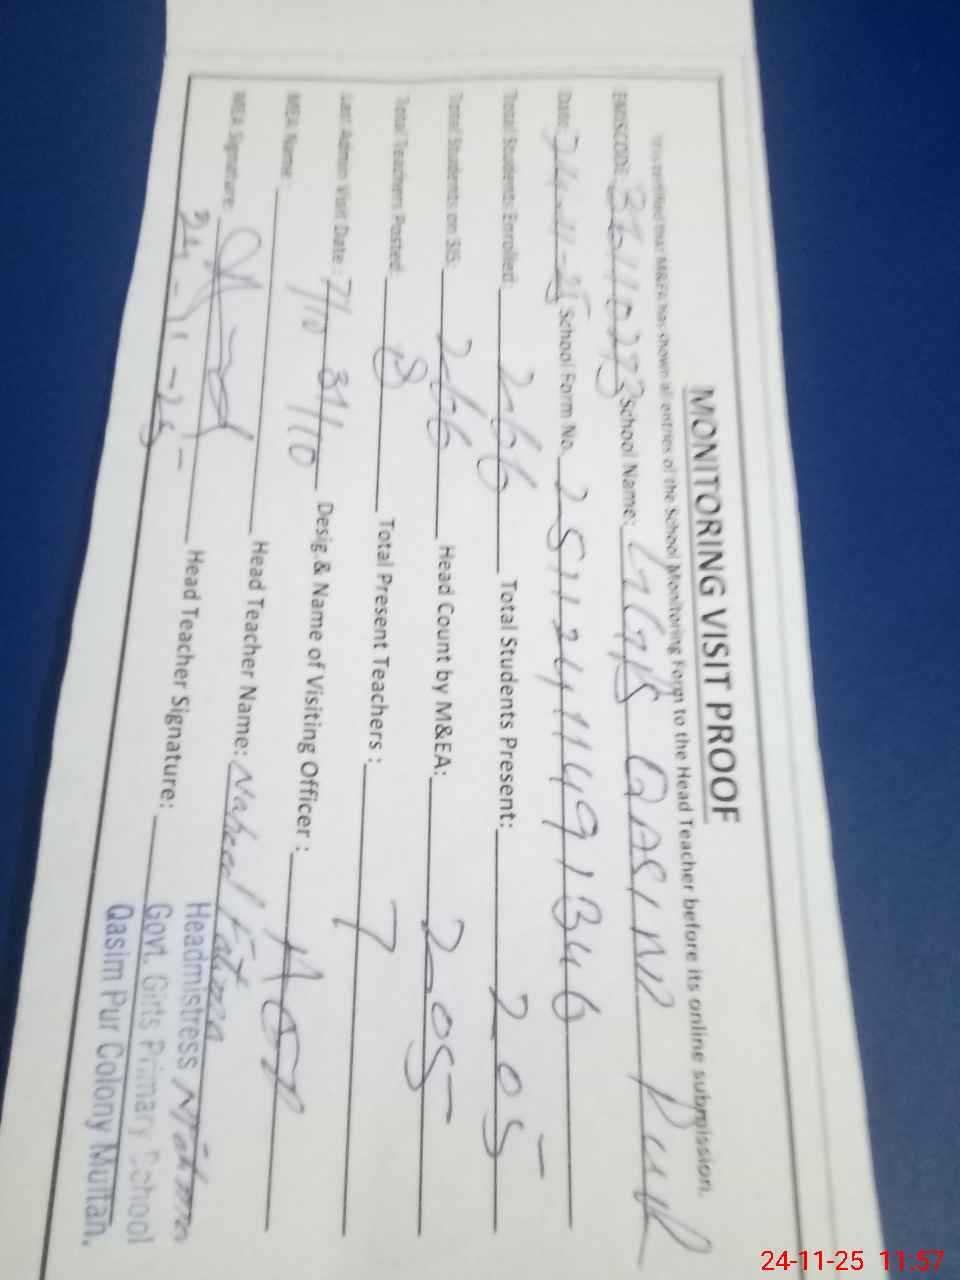 MONITORING VISIT PROOF
It is certified that M&EA has shown all entries of the School Monitoring Form to the Head Teacher before its online submission.
EMISCODE: School Name: GGPS QASIM PUR
Date: 24-11-25 School Form No. 2511241149 1346
Total Students Enrolled: 266 Total Students Present: 205
Total Students on SIS: 266 Head Count by M&EA: 205
Total Teachers Posted: 8 Total Present Teachers: 7
Last Admin Visit Date: 7/10 31/10 Desig & Name of Visiting Officer:
MEA Name: Head Teacher Name: Naheed Fatima
MEA Signature: Head Teacher Signature:
24-11-25
Headmistress
Govt. Girls Primary School
Qasim Pur Colony Multan.
24-11-25 11:57